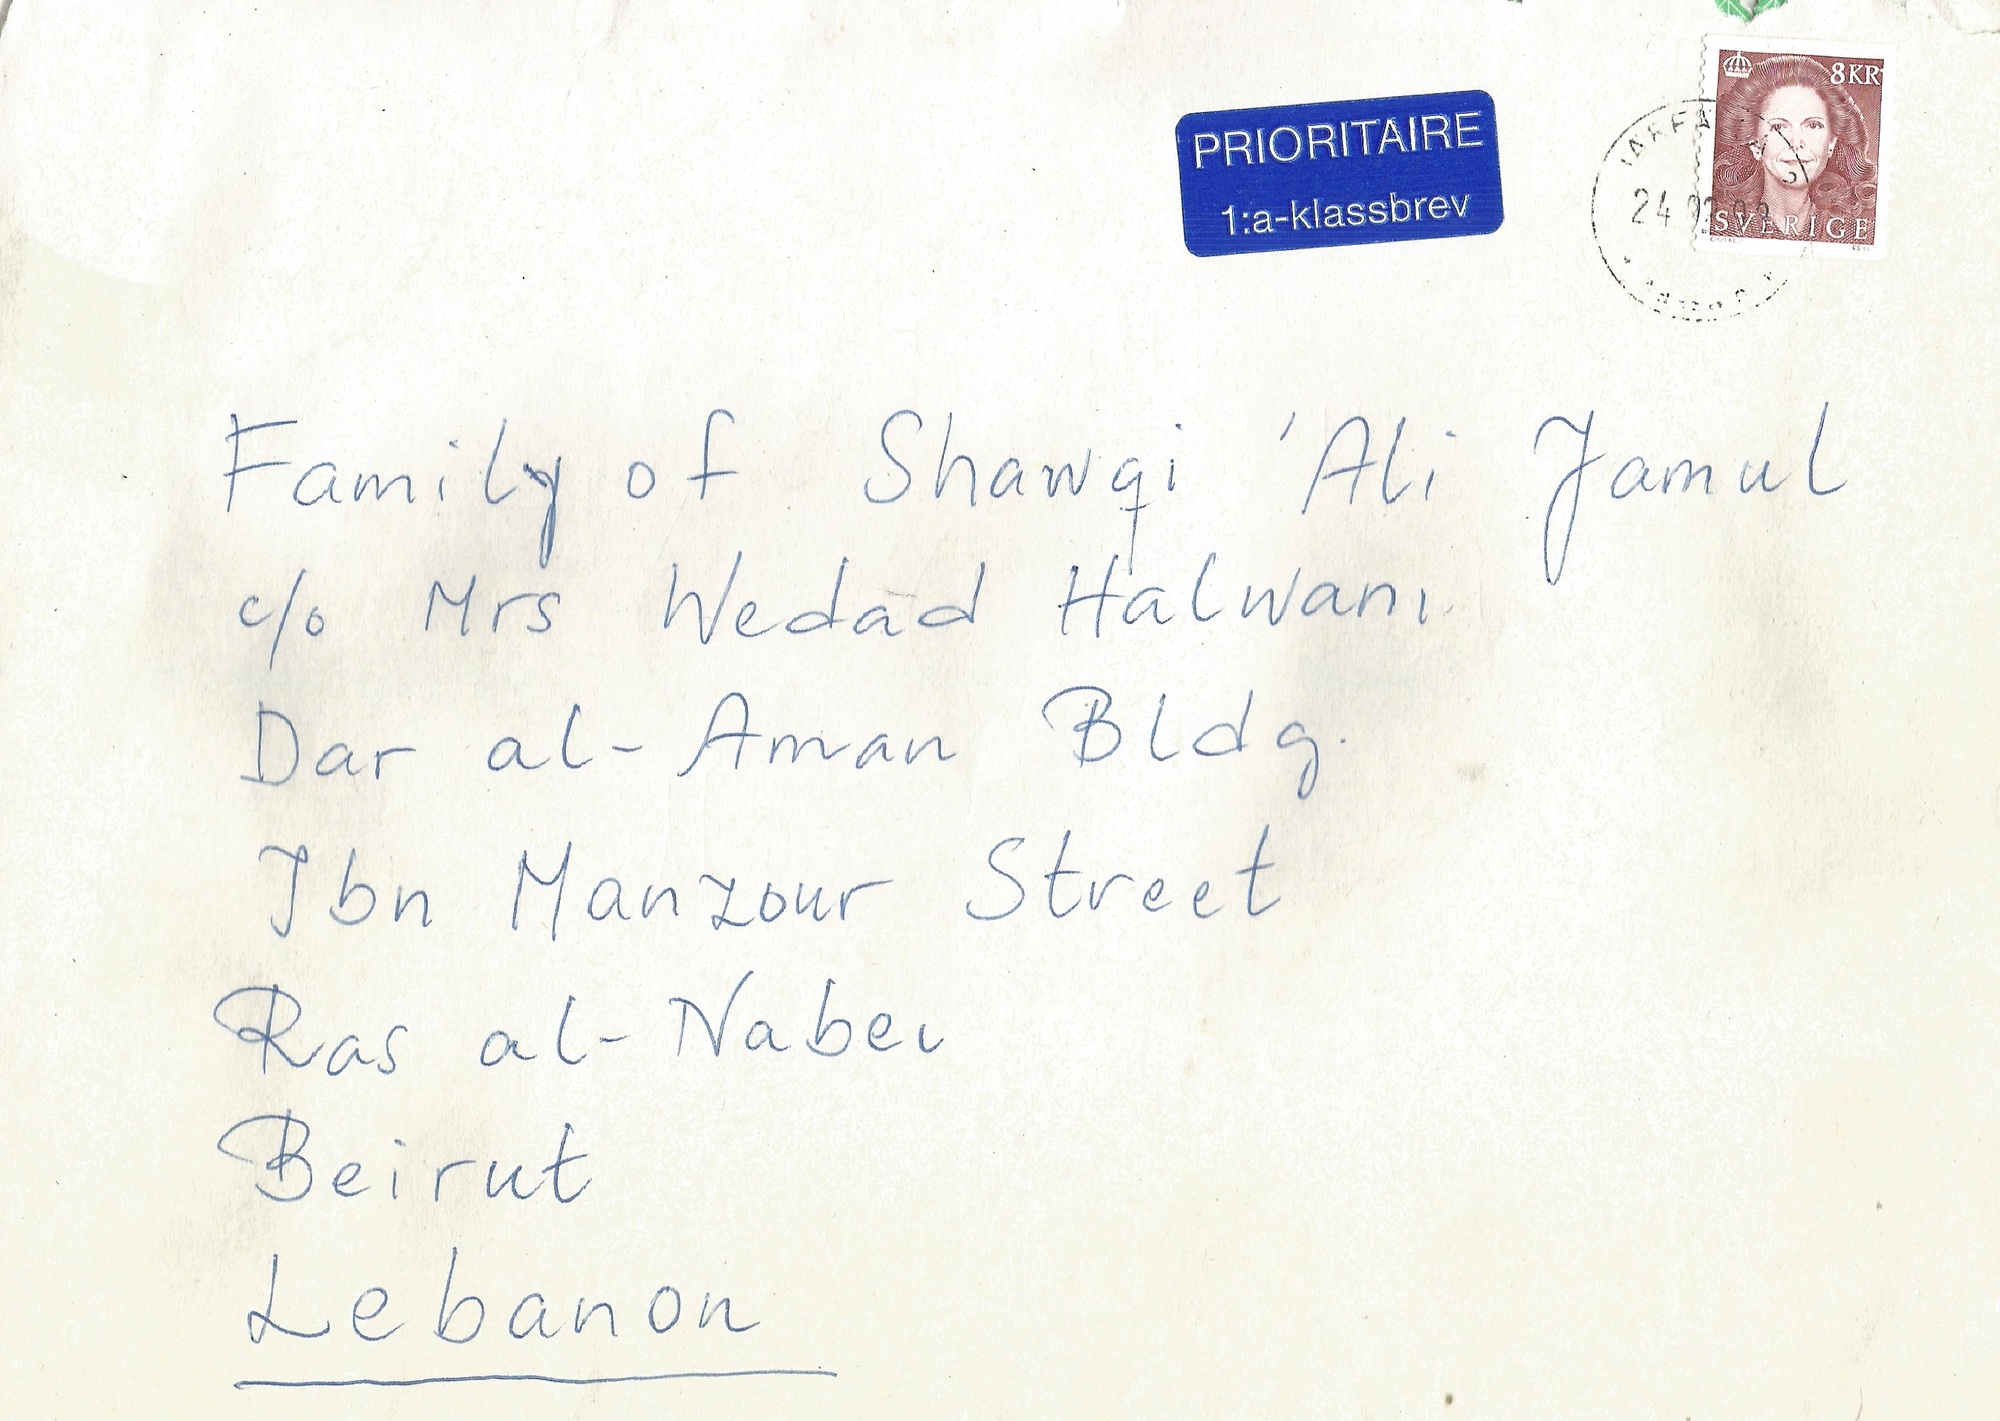 8KR
SVERIGE
PRIORITAIRE
1:a-klassbrev
24
Family of Shawqi 'Ali Jamul
c/o Mrs Wedad Halwani
Dar al-Aman Bldg.
Ibn Manzour Street
Ras al-Nabei
Beirut
Lebanon